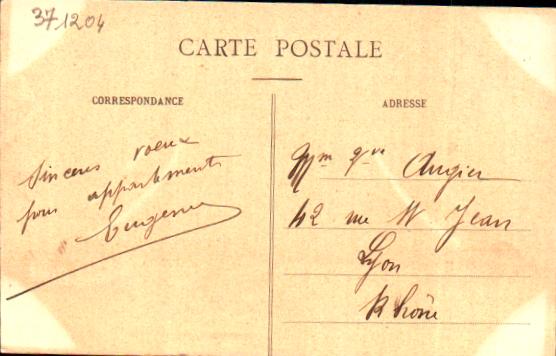 371204
CARTE POSTALE
CORRESPONDANCE
Sincères voeux
pour appartement
Eugenie
ADRESSE
Mm Vve Augier
42 rue St Jean
Lyon
Rhône